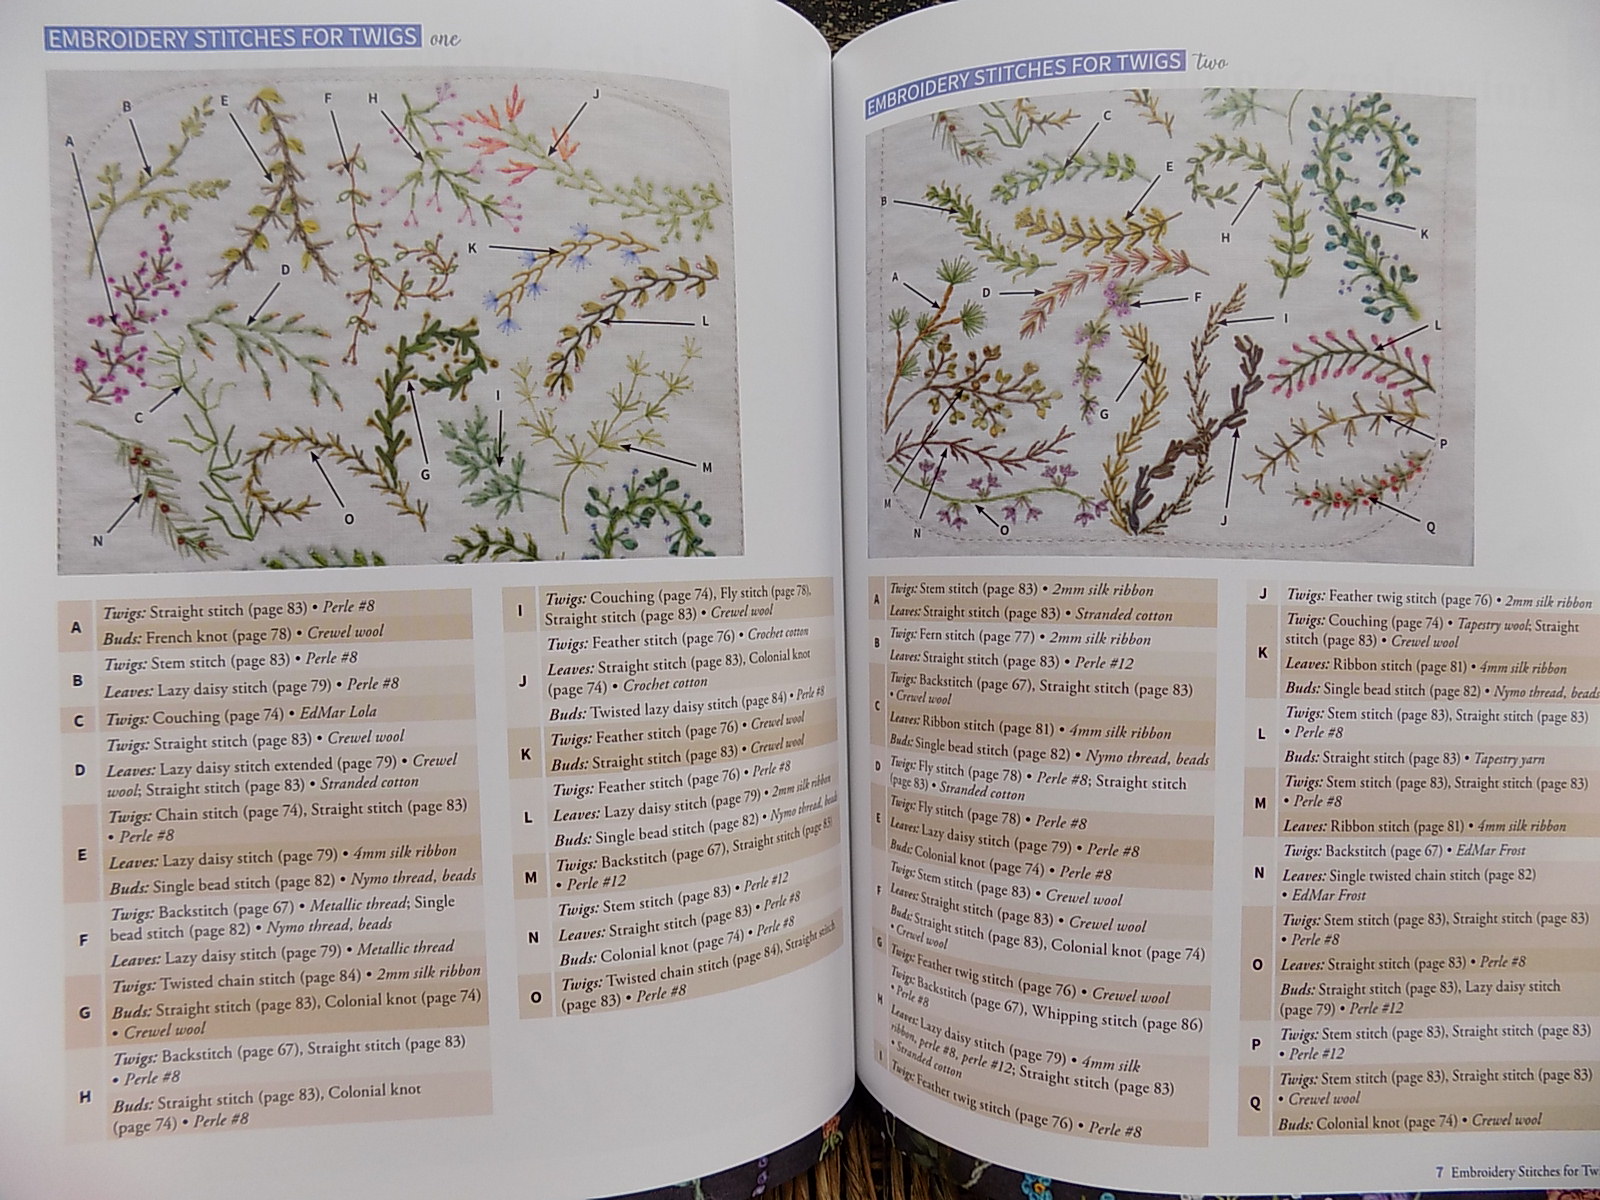 EMBROIDERY STITCHES FOR TWIGS one
B
E
F
H
J
A
K
D
L
C
I
G
M
O
N
A
Twigs: Straight stitch (page 83) • Perle #8
Buds: French knot (page 78) • Crewel wool
B
Twigs: Stem stitch (page 83) • Perle #8
Leaves: Lazy daisy stitch (page 79) • Perle #8
C
Twigs: Couching (page 74) • EdMar Lola
D
Twigs: Straight stitch (page 83) • Crewel wool
Leaves: Lazy daisy stitch extended (page 79) • Crewel
wool; Straight stitch (page 83) • Stranded cotton
E
Twigs: Chain stitch (page 74), Straight stitch (page 83)
• Perle #8
Leaves: Lazy daisy stitch (page 79) • 4mm silk ribbon
Buds: Single bead stitch (page 82) • Nymo thread, beads
F
Twigs: Backstitch (page 67) • Metallic thread; Single
bead stitch (page 82) • Nymo thread, beads
Leaves: Lazy daisy stitch (page 79) • Metallic thread
G
Twigs: Twisted chain stitch (page 84) • 2mm silk ribbon
Buds: Straight stitch (page 83), Colonial knot (page 74)
• Crewel wool
H
Twigs: Backstitch (page 67), Straight stitch (page 83)
• Perle #8
Buds: Straight stitch (page 83), Colonial knot
(page 74) • Perle #8
I
Twigs: Couching (page 74), Fly stitch (page 78),
Straight stitch (page 83) • Crewel wool
J
Twigs: Feather stitch (page 76) • Crochet cotton
Leaves: Straight stitch (page 83), Colonial knot
(page 74) • Crochet cotton
Buds: Twisted lazy daisy stitch (page 84) • Perle #8
K
Twigs: Feather stitch (page 76) • Crewel wool
Buds: Straight stitch (page 83) • Crewel wool
L
Twigs: Feather stitch (page 76) • Perle #8
Leaves: Lazy daisy stitch (page 79) • 2mm silk ribbon
Buds: Single bead stitch (page 82) • Nymo thread, beads
M
Twigs: Backstitch (page 67), Straight stitch (page 83)
• Perle #12
N
Twigs: Stem stitch (page 83) • Perle #12
Leaves: Straight stitch (page 83) • Perle #8
Buds: Colonial knot (page 74) • Perle #8
O
Twigs: Twisted chain stitch (page 84), Straight stitch
(page 83) • Perle #8
EMBROIDERY STITCHES FOR TWIGS two
C
E
B
H
K
A
D
F
I
L
G
P
M
N
O
J
Q
A
Twigs: Stem stitch (page 83) • 2mm silk ribbon
Leaves: Straight stitch (page 83) • Stranded cotton
B
Twigs: Fern stitch (page 77) • 2mm silk ribbon
Leaves: Straight stitch (page 83) • Perle #12
C
Twigs: Backstitch (page 67), Straight stitch (page 83)
• Crewel wool
Leaves: Ribbon stitch (page 81) • 4mm silk ribbon
Buds: Single bead stitch (page 82) • Nymo thread, beads
D
Twigs: Fly stitch (page 78) • Perle #8; Straight stitch
(page 83) • Stranded cotton
E
Twigs: Fly stitch (page 78) • Perle #8
Leaves: Lazy daisy stitch (page 79) • Perle #8
Buds: Colonial knot (page 74) • Perle #8
F
Twigs: Stem stitch (page 83) • Crewel wool
Leaves: Straight stitch (page 83) • Crewel wool
Buds: Straight stitch (page 83), Colonial knot (page 74)
• Crewel wool
G
Twigs: Feather twig stitch (page 76) • Crewel wool
H
Twigs: Backstitch (page 67), Whipping stitch (page 86)
• Perle #8
Leaves: Lazy daisy stitch (page 79) • 4mm silk
ribbon, perle #8, perle #12; Straight stitch (page 83)
• Stranded cotton
I
Twigs: Feather twig stitch (page 76) • Perle #8
J
Twigs: Feather twig stitch (page 76) • 2mm silk ribbon
K
Twigs: Couching (page 74) • Tapestry wool; Straight
stitch (page 83) • Crewel wool
Leaves: Ribbon stitch (page 81) • 4mm silk ribbon
Buds: Single bead stitch (page 82) • Nymo thread, beads
L
Twigs: Stem stitch (page 83), Straight stitch (page 83)
• Perle #8
Buds: Straight stitch (page 83) • Tapestry yarn
M
Twigs: Stem stitch (page 83), Straight stitch (page 83)
• Perle #8
Leaves: Ribbon stitch (page 81) • 4mm silk ribbon
N
Twigs: Backstitch (page 67) • EdMar Frost
Leaves: Single twisted chain stitch (page 82)
• EdMar Frost
O
Twigs: Stem stitch (page 83), Straight stitch (page 83)
• Perle #8
Leaves: Straight stitch (page 83) • Perle #8
Buds: Straight stitch (page 83), Lazy daisy stitch
(page 79) • Perle #12
P
Twigs: Stem stitch (page 83), Straight stitch (page 83)
• Perle #12
Q
Twigs: Stem stitch (page 83), Straight stitch (page 83)
• Crewel wool
Buds: Colonial knot (page 74) • Crewel wool
7 Embroidery Stitches for Tw